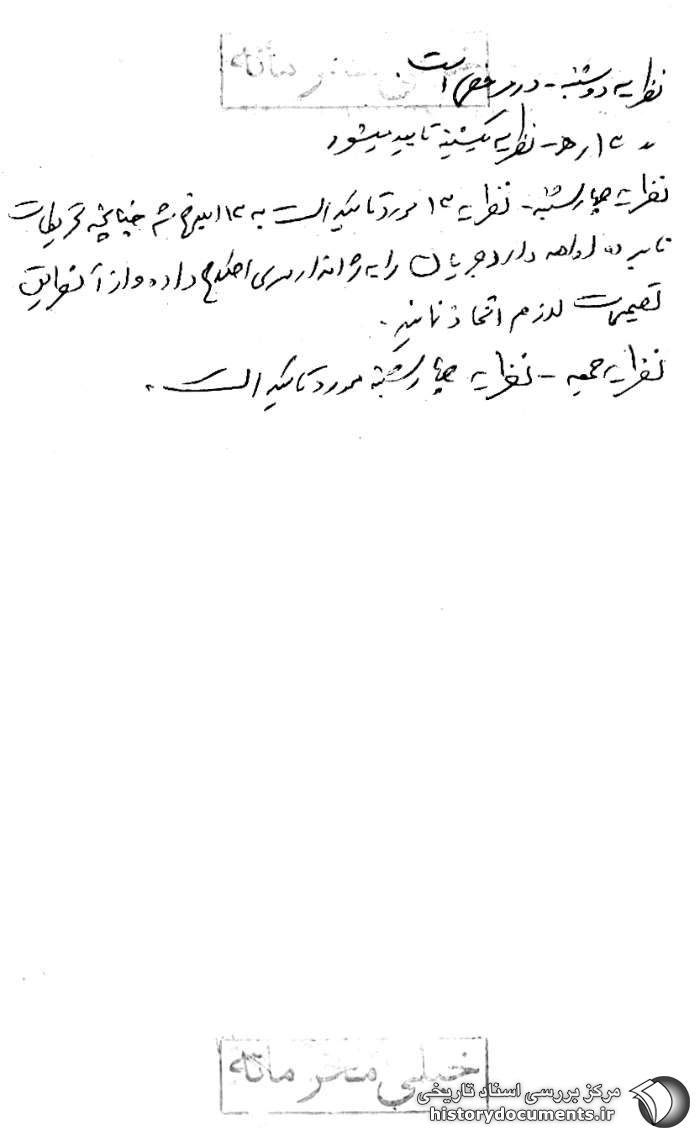 خیلی محرمانه
نظریه دوشنبه - در مرخصی است
" ۱۳ ه‍ - نظریه یکشنبه تایید میشود
نظریه چهارشنبه - نظریه ۱۳ مورد تائید است به ۱۳ شد چنانچه تحریکات
نامبرده ادامه دارد جریان را به ژاندارمری اطلاع داده و از آن طریق
تصمیمات لازم اتخاذ نمایند.
نظریه جمعه - نظریه چهارشنبه مورد تائید است.
خیلی محرمانه
مرکز بررسی اسناد تاریخی
historydocuments.ir